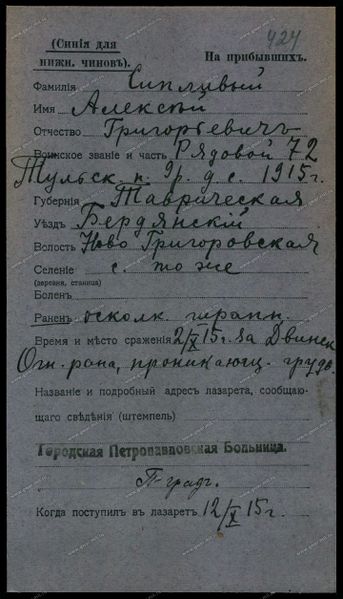 (Синія для
нижн. чиновъ).
На прибывшихъ.
424
Фамилія Сиплывый
Имя Алексѣй
Отчество Григорьевичъ
Воинское званіе и часть Рядовой 72
Тульск. п. 9 р. д. с. 1915 г.
Губернія Таврическая
Уѣздъ Бердянскій
Волость Ново Григоровская
Селеніе с. то же
(деревня, станица)
Боленъ
Раненъ осколк. шрапн.
Время и мѣсто сраженія 2/X 15 г. за Двинск
Огн. рана, проникающ. грудь.
Названіе и подробный адресъ лазарета, сообщаю-
щаго свѣдѣнія (штемпель)
Городская Петропавловская Больница.
П-градъ.
Когда поступилъ въ лазаретъ 12/X 15 г.